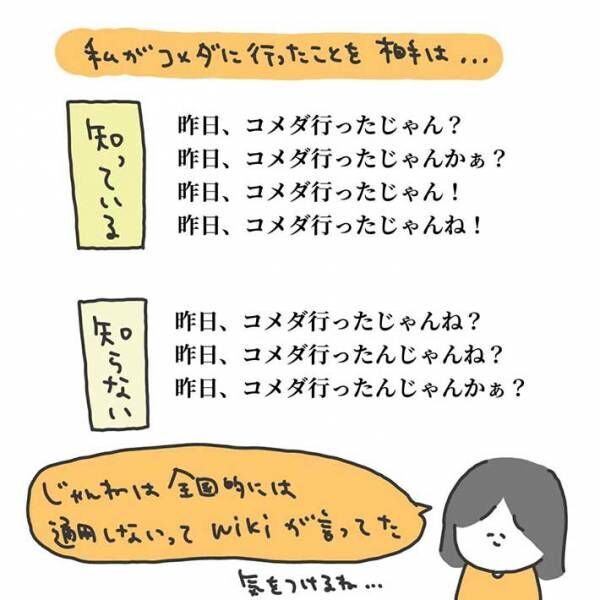 私がコメダに行ったことを 相手は...
知っている
昨日、コメダ行ったじゃん？
昨日、コメダ行ったじゃんかぁ？
昨日、コメダ行ったじゃん！
昨日、コメダ行ったじゃんね！
知らない
昨日、コメダ行ったじゃんね？
昨日、コメダ行ったんじゃんね？
昨日、コメダ行ったんじゃんかぁ？
じゃんねは 全国的には
通用しないって wikiが言ってた
気をつけるね...